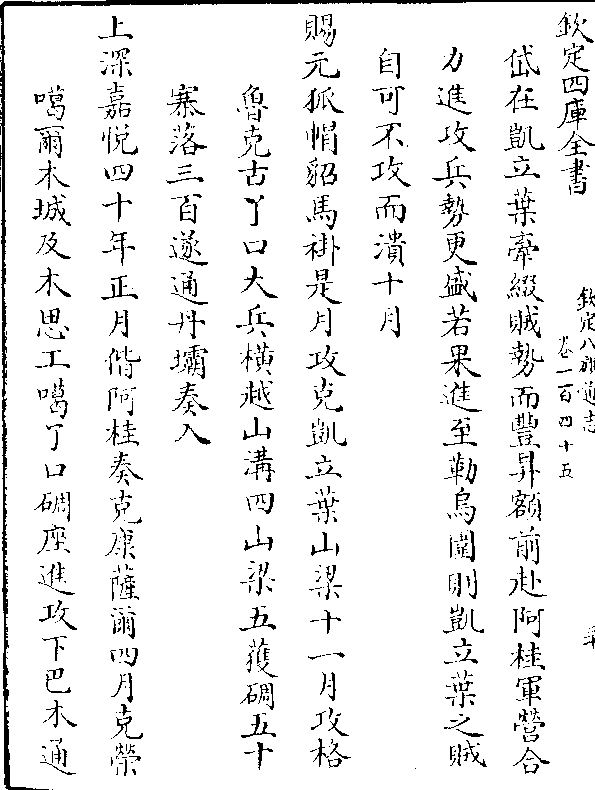 欽定四庫全書
欽定八旗通志
卷一百四十五
岱在凱立葉牽綴賊勢而豐昇額前赴阿桂軍營合
力進攻兵勢更盛若果進至勒烏圍則凱立葉之賊
自可不攻而潰十月
賜元狐帽貂馬褂是月攻克凱立葉山梁十一月攻格
魯克古丫口大兵橫越山溝四山梁五獲碉五十
寨落三百遂通丹壩奏入
上深嘉悅四十年正月偕阿桂奏克康薩爾四月克榮
噶爾木城及木思工噶丫口碉座進攻下巴木通